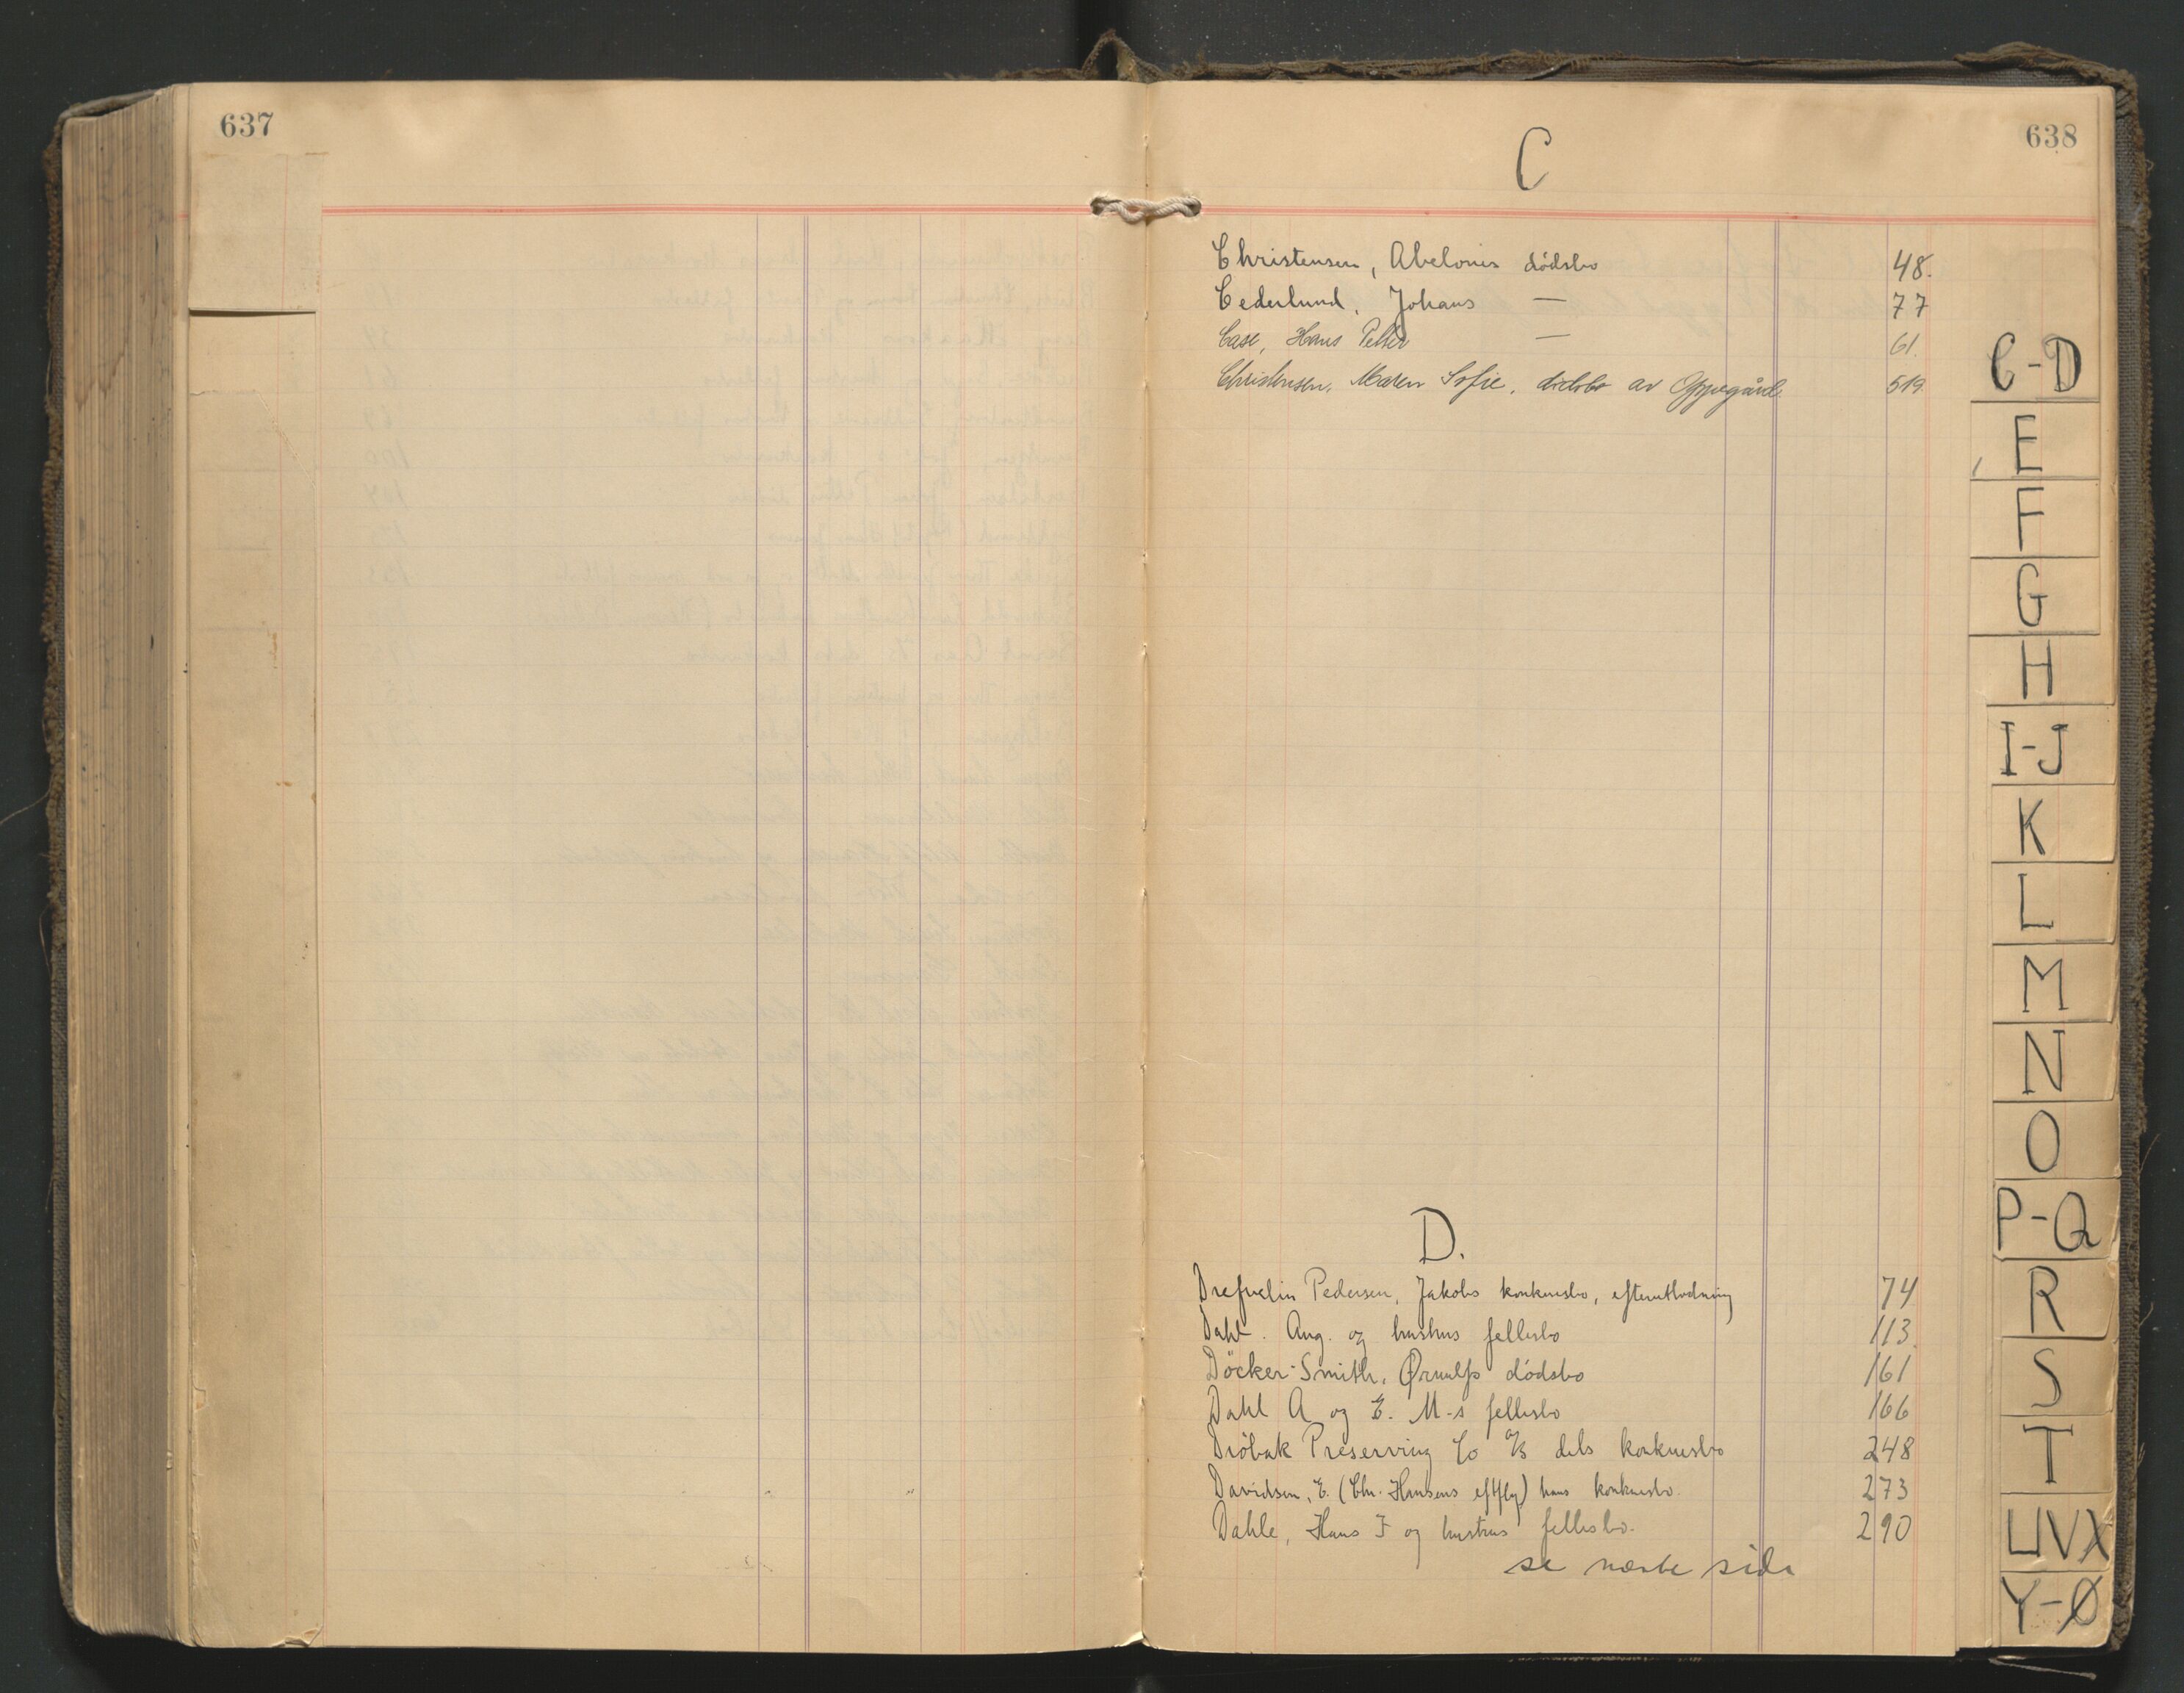 637
638
C
Christensen, Abelones dödsbo 48.
Cederlund, Johans — 77
Case, Hans Petter — 61.
Christensen, Maren Sofie, dødsbo av Oppegård 519.
D.
Drefvelin Pedersen, Jakobs konkursbo, efterutlodning 74
Dahl. Aug. og hustrus fellesbo 113.
Döcker-Smith, Ørnulfs dödsbo 161
Dahl A og E. M-s fellesbo 166
Dröbak Preserving Co A/S dets konkursbo 248
Davidsen, E. (Chr. Hansens eftflg) hans konkursbo. 273
Dahle, Hans F og hustrus fellesbo. 290
se næste side
C-D
E
F
G
H
I-J
K
L
M
N
O
P-Q
R
S
T
UVX
Y-Ø